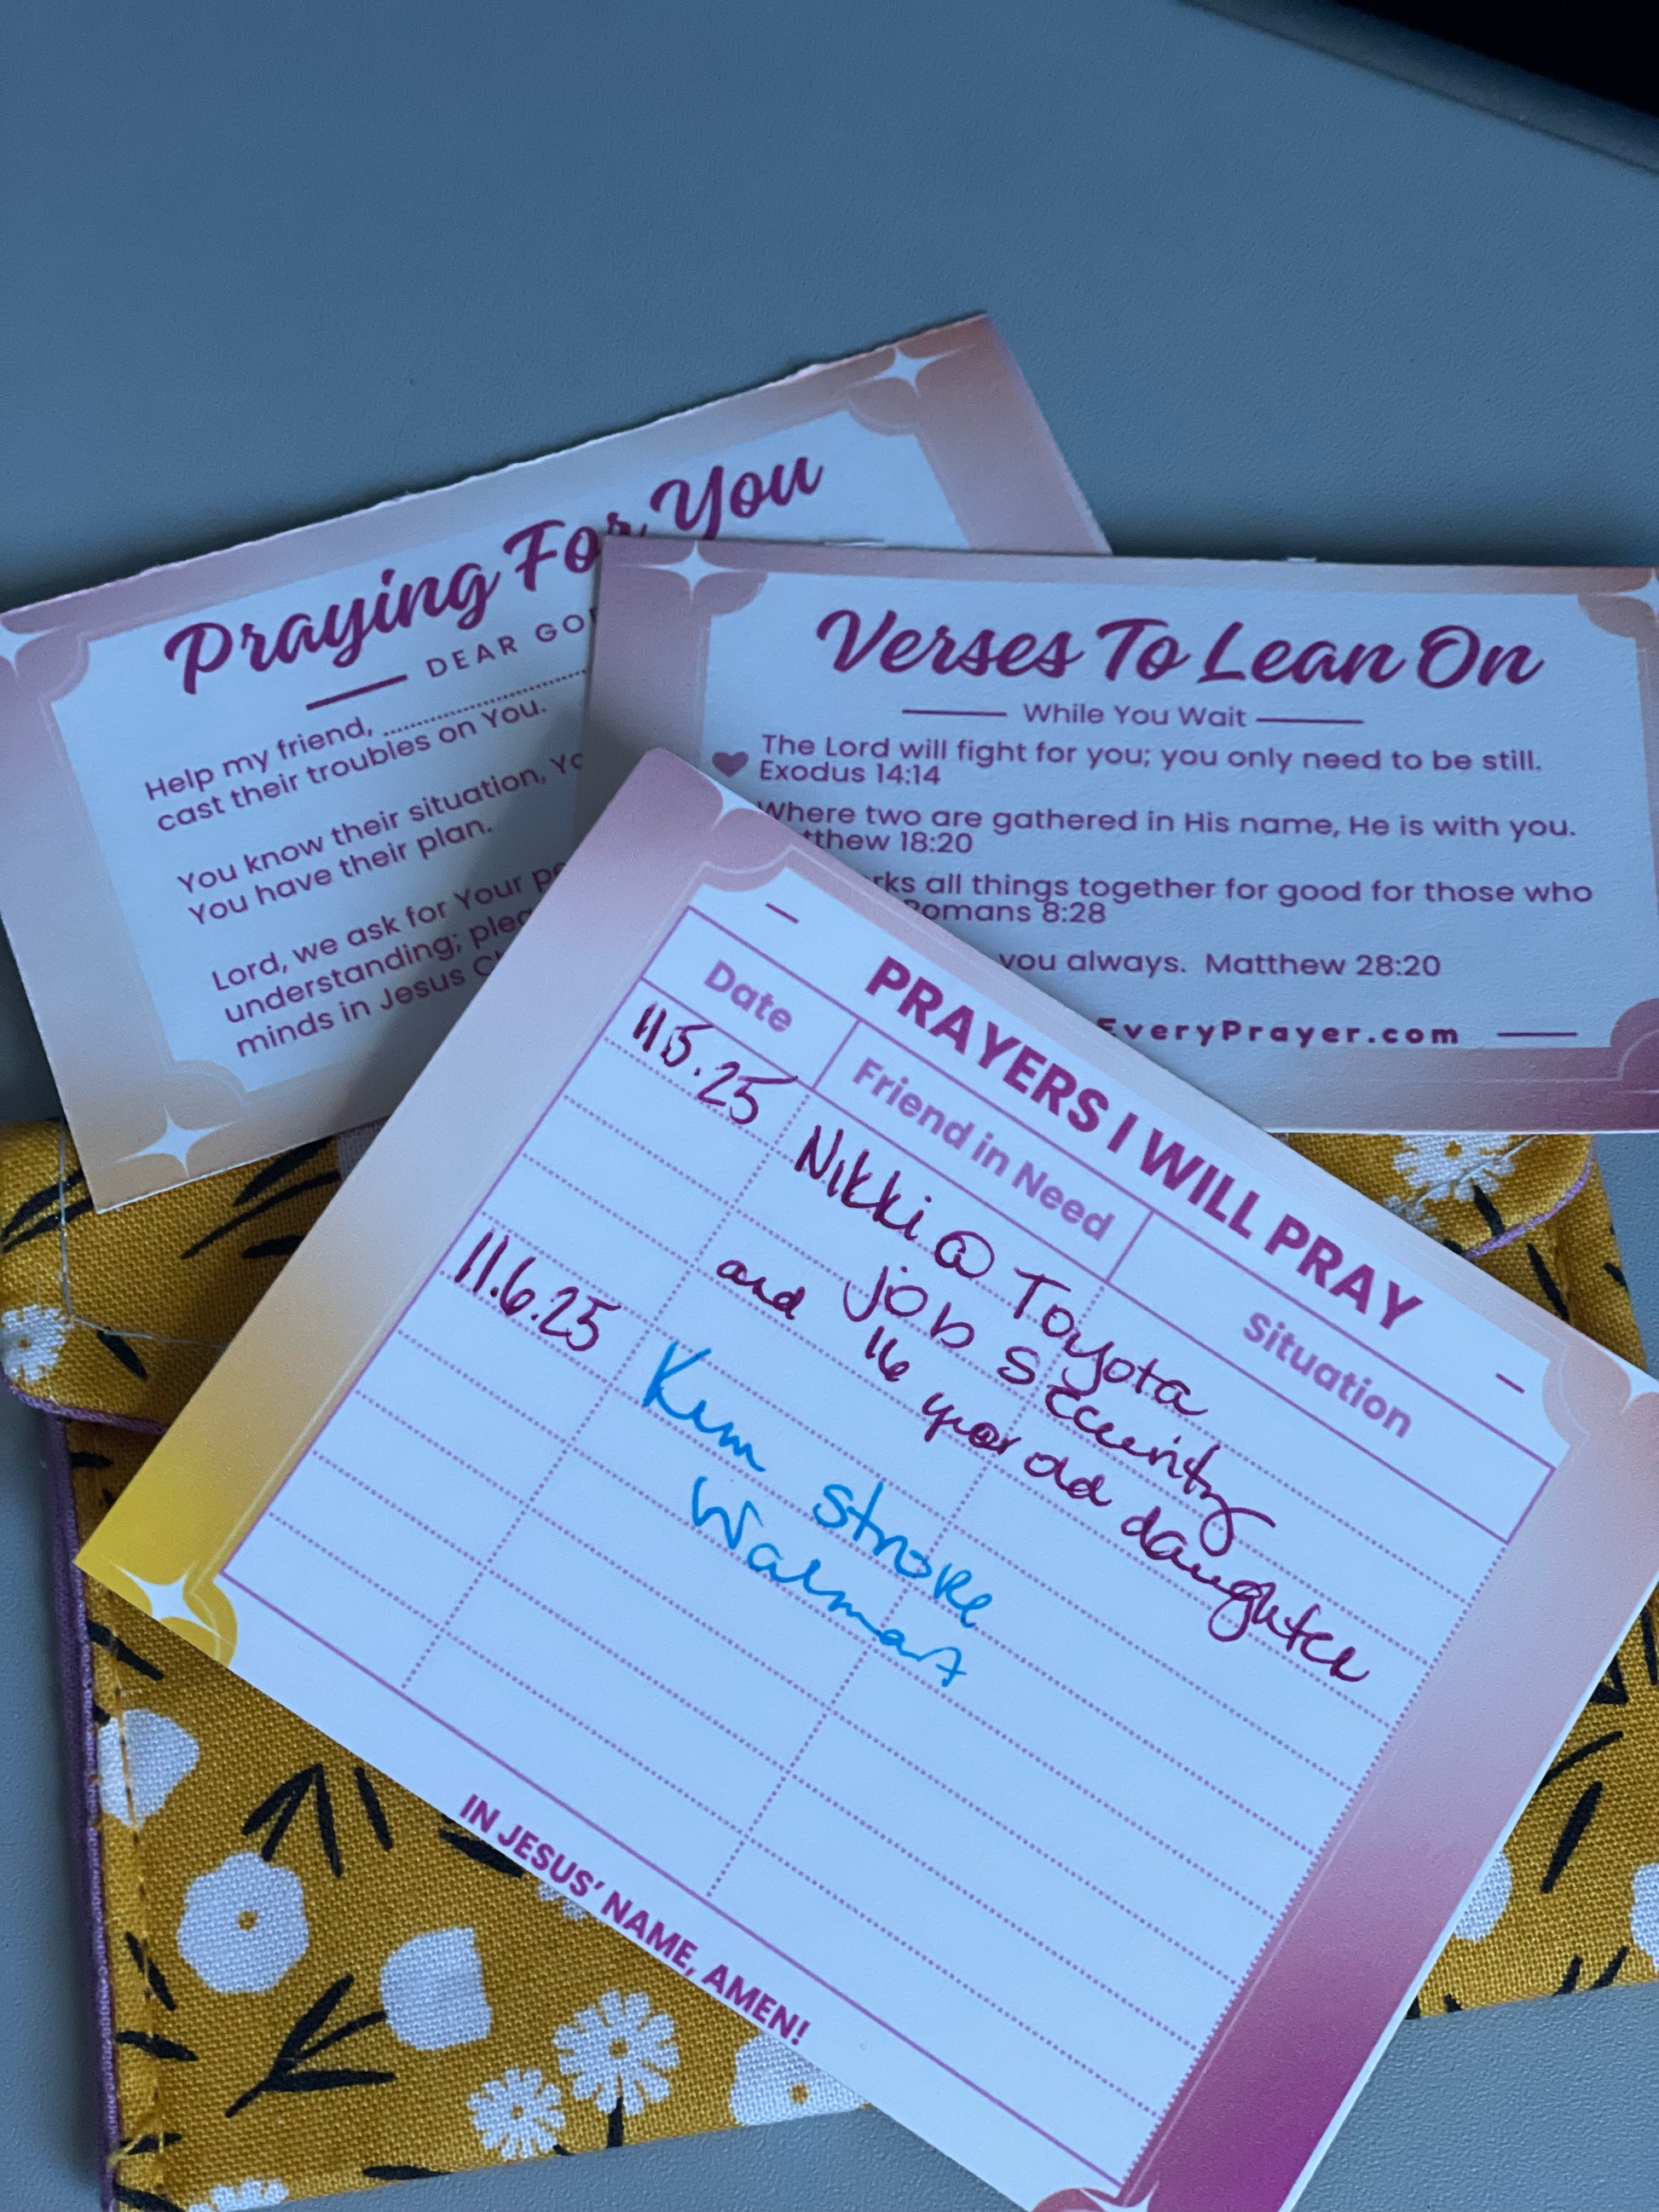 Praying For You
DEAR GO
Help my friend,
cast their troubles on You.
You know their situation,
You have their plan.
Lord, we ask for Your
understanding;
minds in Jesus
Verses To Lean On
While You Wait
The Lord will fight for you; you only need to be still.
Exodus 14:14
Where two are gathered in His name, He is with you.
thew 18:20
rks all things together for good for those who
Romans 8:28
you always. Matthew 28:20
EveryPrayer.com
PRAYERS I WILL PRAY
Date Friend in Need Situation
11.5.25 Nikki @ Toyota
job security
and 16 year old daughter
11.6.25 Kim stroke
Walmart
IN JESUS' NAME, AMEN!